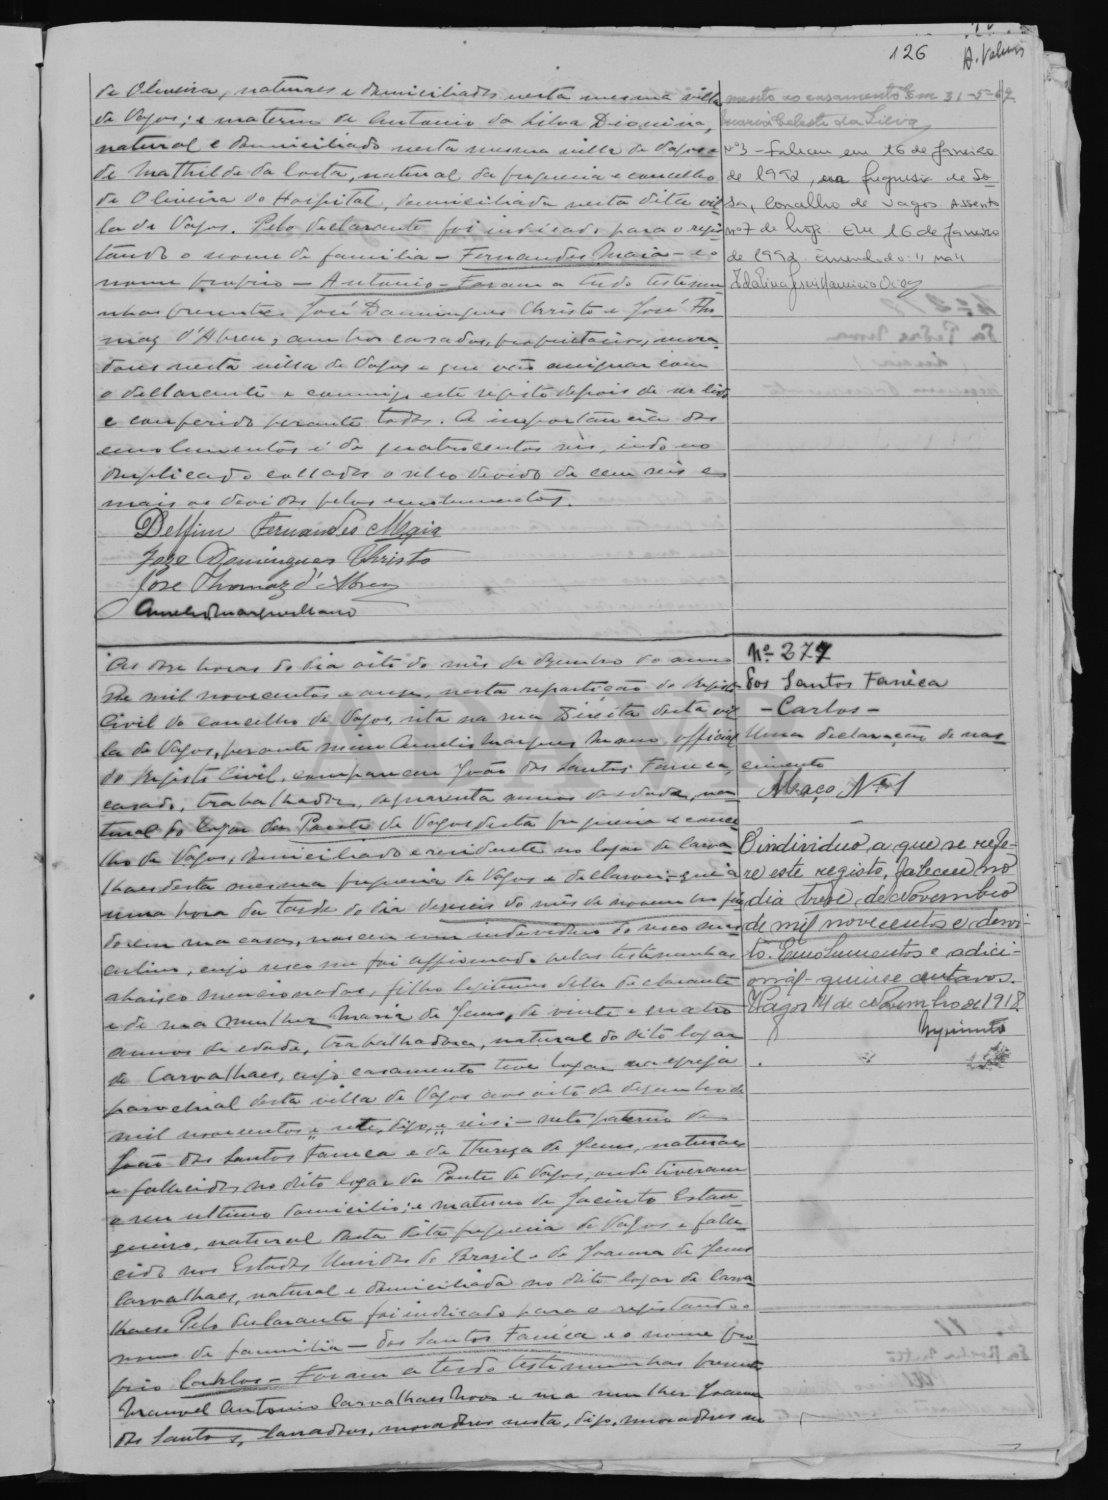 126
A. Valeiro
de Oliveira, naturaes e domiciliados nesta mesma villa
de Vagos; e materno de Antonio da Silva Dionizio,
natural e domiciliado nesta mesma villa de Vagos e
de Mathilde da Costa, natural da freguezia e concelho
de Oliveira do Hospital, domiciliada nesta dita vil-
la de Vagos. Pelo declarante foi indicado para o regis-
tando o nome de familia - Fernandes Maia - e o
nome proprio - Antonio - Foram a tudo testemu-
nhas presentes José Domingues Christo e José Tho-
maz d'Abreu, ambos casados, proprietarios, mora-
dores nesta villa de Vagos e que vão assignar com
o declarante e commigo este registo depois de ser lido
e conferido perante todos. A importancia dos
emolumentos é de quatrocentos reis, indo no
duplicado collados o sello devido de cem reis e
mais os devidos pelos emolumentos.
Delfim Fernandes Maia
Joze Domingues Christo
José Thomaz d'Abreu
Amelio Marques Mano
mento ao casamento Em 31-5-69
Maria Celeste da Silva
Nº3 - Faleceu em 16 de Janeiro
de 1992, na freguesia de So-
sa, Concelho de Vagos. Assento
nº 7 de hoje. Em 16 de Janeiro
de 1992. emendado: "na"
Ás doze horas do dia oito do mês de dezembro do anno
de mil novecentos e onze, nesta repartição do Registo
Civil do concelho de Vagos, sita na rua Direita desta vil-
la de Vagos, perante mim Amelio Marques Mano, official
do Registo Civil, compareceu João dos Santos Faneca,
casado, trabalhador, de quarenta annos de edade, na-
tural do logar da Ponte de Vagos desta freguezia e conce-
lho de Vagos, domiciliado e residente no logar de Carva-
lhaes desta mesma freguezia de Vagos e declarou: que á
uma hora da tarde do dia dezeseis do mês de novembro fin-
do, em sua casa, nasceu um individuo do sexo mas-
culino, cujo sexo me foi affirmado pelas testemunhas
abaixo mencionadas, filho legitimo delle declarante
e de sua mulher Maria de Jesus, de vinte e quatro
annos de edade, trabalhadora, natural do dito logar
de Carvalhaes, cujo casamento teve logar na egreja
parochial desta villa de Vagos aos oito de dezembro de
mil novecentos e sete, digo, e seis; - neto paterno de
João dos Santos Faneca e de Thereza de Jesus, naturaes
e fallecidos no dito logar da Ponte de Vagos, onde tiveram
o seu ultimo domicilio; e materno de Jacinto Estan-
queiro, natural desta dita freguezia de Vagos e falle-
cido nos Estados Unidos do Brazil e de Joanna de Jesus
Carvalhaes, natural e domiciliada no dito logar de Carva-
lhaes. Pelo declarante foi indicado para o registando o
nome de familia - dos Santos Faneca e o nome pro-
prio Carlos - Foram a tudo testemunhas presentes
Manuel Antonio Carvalhaes Novo e sua mulher Joanna
dos Santos, lavradores, moradores nesta, digo, moradores no
Nº 277
Dos Santos Faneca
- Carlos -
Uma declaração de nas-
cimento
Maço Nº 1
O individuo, a que se refe-
re este registo, faleceu no
dia treze de Novembro
de mil novecentos e dezoi-
to. Emolumentos e adici-
onal - quinze centavos.
Vagos 14 de Novembro de 1918